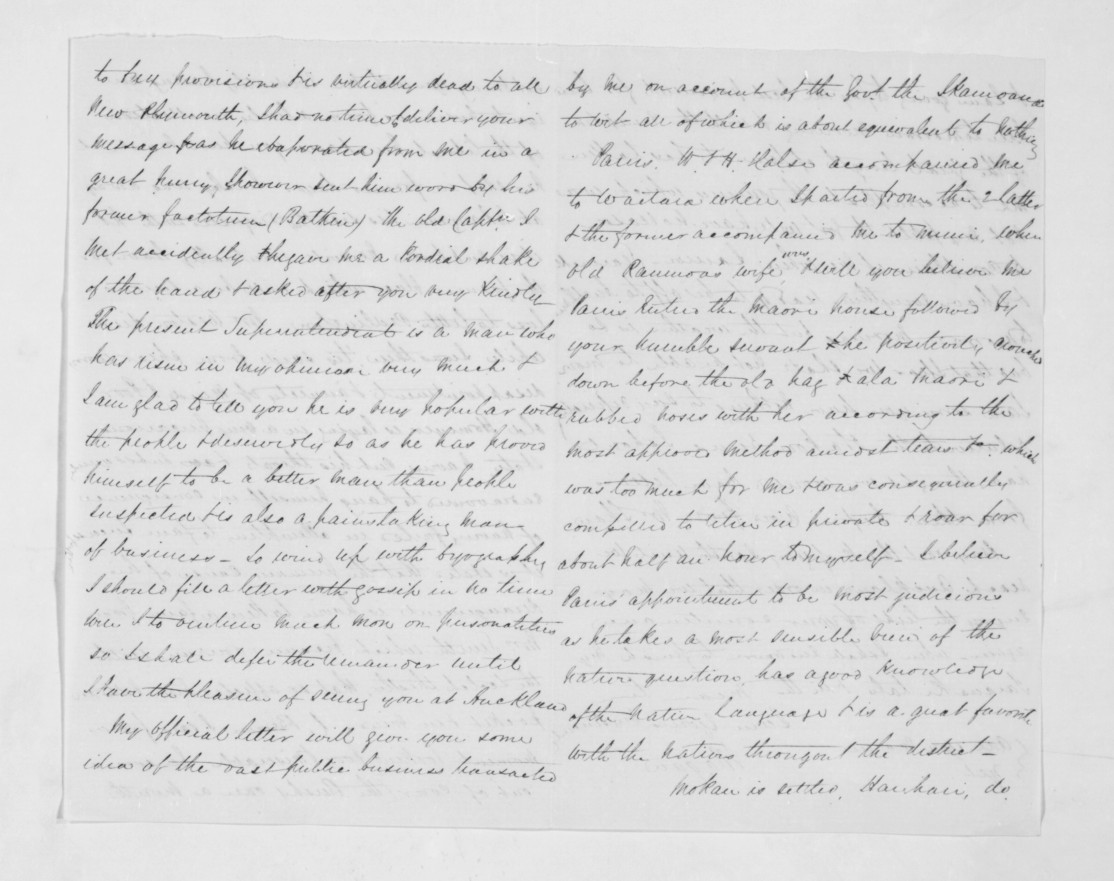 to his provisions & is virtually dead to all
New Plymouth, I had no time to deliver your
message & as he evaporated from me in a
great hurry, I however sent him word by his
former factotum (Batken) the old Captn. I
met accidently & he gave me a Kordial shake
of the hand & asked after you very Kindly
The present Superintendent is a man who
has risen in my opinion very much &
I am glad to tell you he is very popular with
the people & deservedly so as he has proved
himself to be a better man than people
suspected & is also a painstaking man
of business - To wind up with byography
I should fill a letter with gossip in no time
were I to venture much more on personalities
so I shall defer the remainder until
I have the pleasure of seeing you at Auckland
My official letter will give you some
idea of the vast public business transacted
by me on account of the Govt. the
to wit all of which is about equivalent to nothing
Parris, W. & H. Halse accompanied me
to Waitara where I parted from the 2 latter
& the former accompanied me to mimi, when
old wife was, & will you believe me
Parris Entered the maori house followed by
your humble servant & he positively crouched
down before the old hag & ala maori &
rubbed noses with her according to the
most approved method amidst tears &c which
was too much for me & was consequently
compelled to retire in private & roar for
about half an hour to myself - I believe
Parris appointment to be most judicious
as he takes a most sensible view of the
native question, has a good Knowledge
of the Native Language & is a great favorite
with the natives througout the district -
Mokau is settled, do.